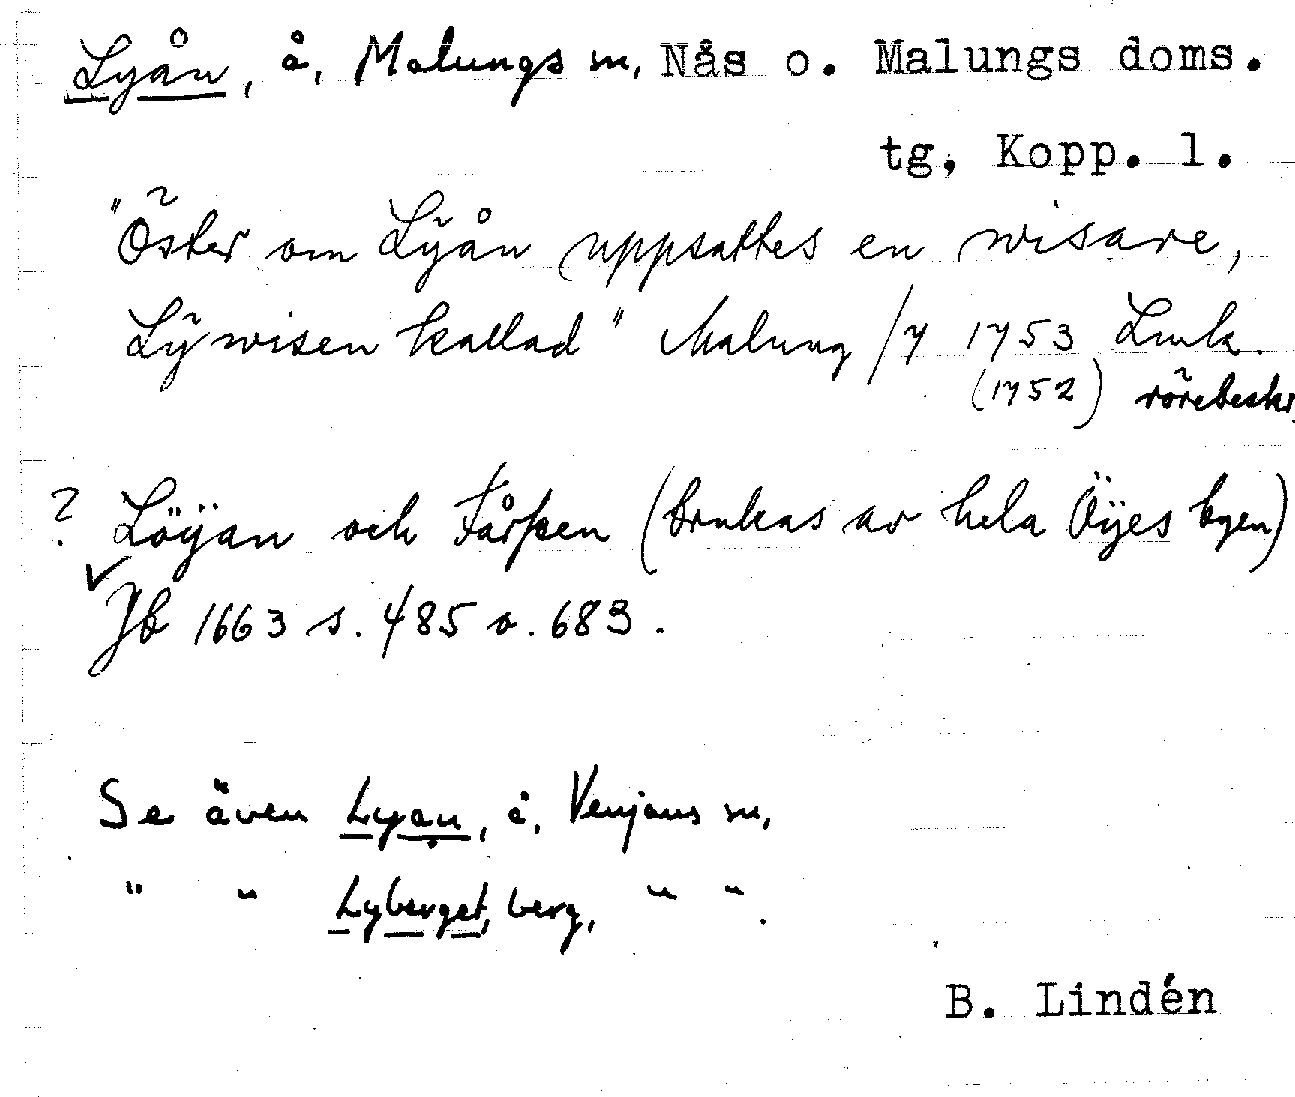 Lyån, å, Malungs sn, Nås o. Malungs doms.
tg, Kopp. l.
"Öster om Lÿån uppsattes en wisare,
Lÿwisen kallad" Malung /7 1753 Lmk.
(1752) rörebeskr.
? Löÿan och Fårþen (brukas av hela Öÿes byen)
Jb 1663 s. 485 o. 683.
Se även Lyån, å, Venjans sn,
" " Lyberget, berg, " ".
B. Lindén